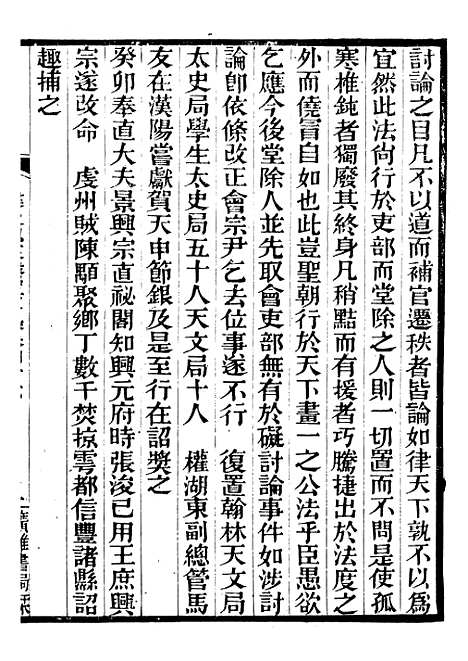 討論之目凡不以道而補官遷秩者皆論如律天下孰不以爲
宜然此法尙行於吏部而堂除之人則一切置而不問是使孤
寒椎鈍者獨廢其終身凡稍黠而有援者巧騰捷出於法度之
外而僥冒自如也此豈聖朝行於天下畫一之公法乎臣愚欲
乞應今後堂除人並先取會吏部有無於礙討論事件如涉討
論卽依條改正會宗尹乞去位事遂不行　復置翰林天文局
太史局學生太史局五十人天文局十人　權湖東副總管馬
友在漢陽嘗獻賀天申節銀及是至行在詔獎之
癸卯奉直大夫景興宗直祕閣知興元府時張浚已用王庶興
宗遂改命　虔州賊陳顒聚鄉丁數千焚掠雩都信豐諸縣詔
趣捕之
廣雅書局